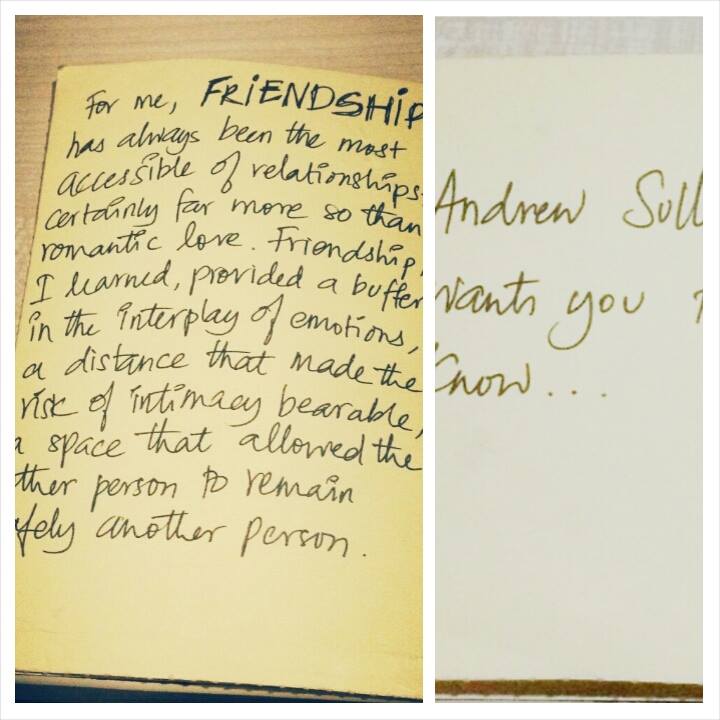 For me, FRiENDSHiP
has always been the most
accessible of relationships-
certainly far more so than
romantic love. Friendship,
I learned, provided a buffer
in the interplay of emotions,
a distance that made the
risk of intimacy bearable,
a space that allowed the
ther person to remain
fely another person.
Andrew Sull
wants you
know...